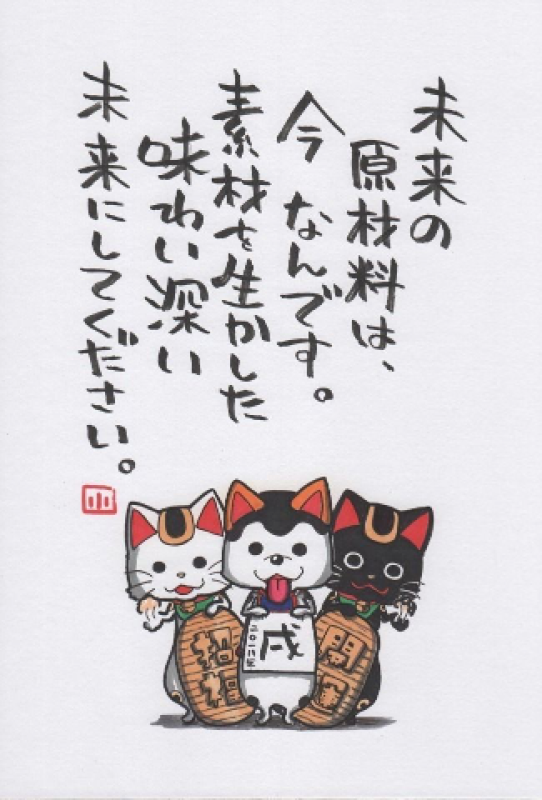 未来の
原材料は、
今なんです。
素材を生かした
味わい深い
未来にしてください。
小
招福
戌
二〇一八年
開運